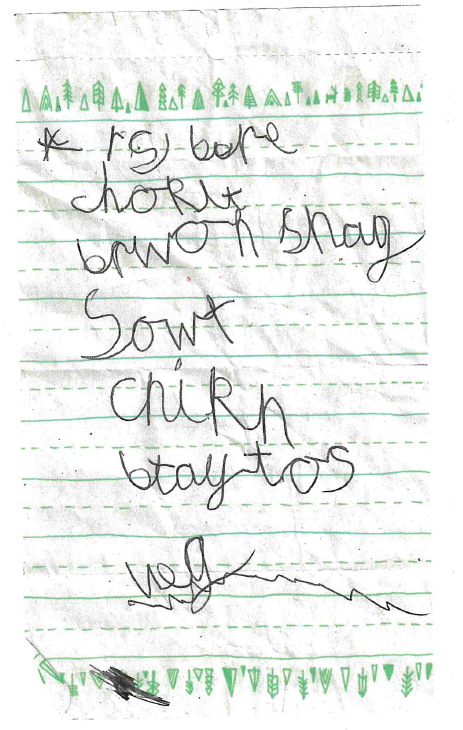 * (5) bore
choklt
brwoh shag
Sowt
chikn
btaytos
veg